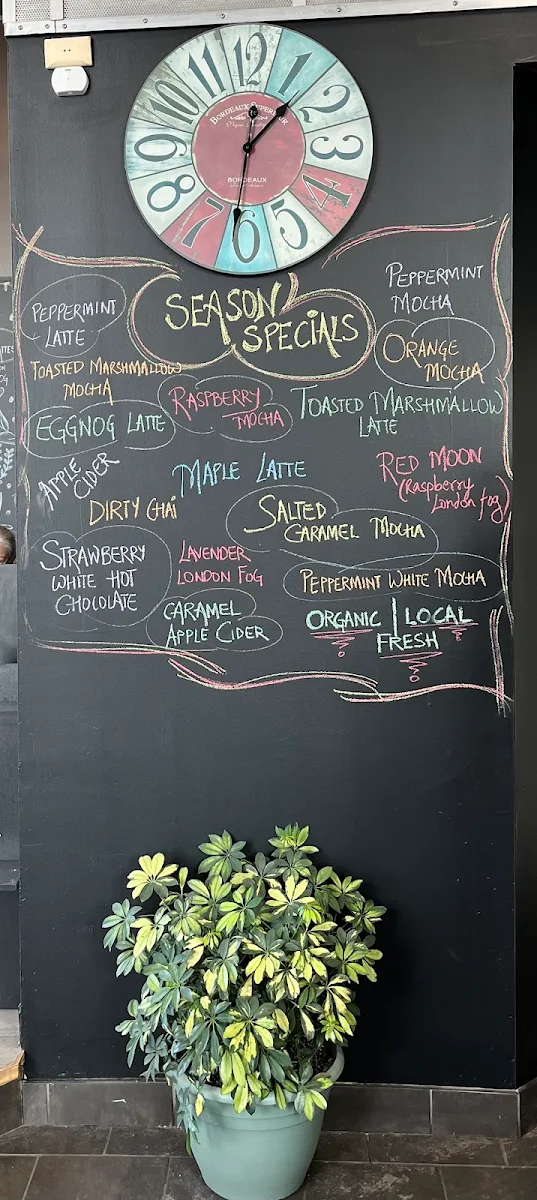 12
1
2
3
4
5
6
7
8
9
10
11
BORDEAUX SUPERIEUR
BORDEAUX
SEASON
SPECIALS
PEPPERMINT
LATTE
PEPPERMINT
MOCHA
TOASTED MARSHMALLOW
MOCHA
ORANGE
MOCHA
RASPBERRY
MOCHA
TOASTED MARSHMALLOW
LATTE
EGGNOG LATTE
APPLE
CIDER
MAPLE LATTE
RED MOON
(Raspberry
London fog)
DIRTY CHAI
SALTED
CARAMEL MOCHA
STRAWBERRY
WHITE HOT
CHOCOLATE
LAVENDER
LONDON FOG
PEPPERMINT WHITE MOCHA
CARAMEL
APPLE CIDER
ORGANIC | LOCAL
FRESH